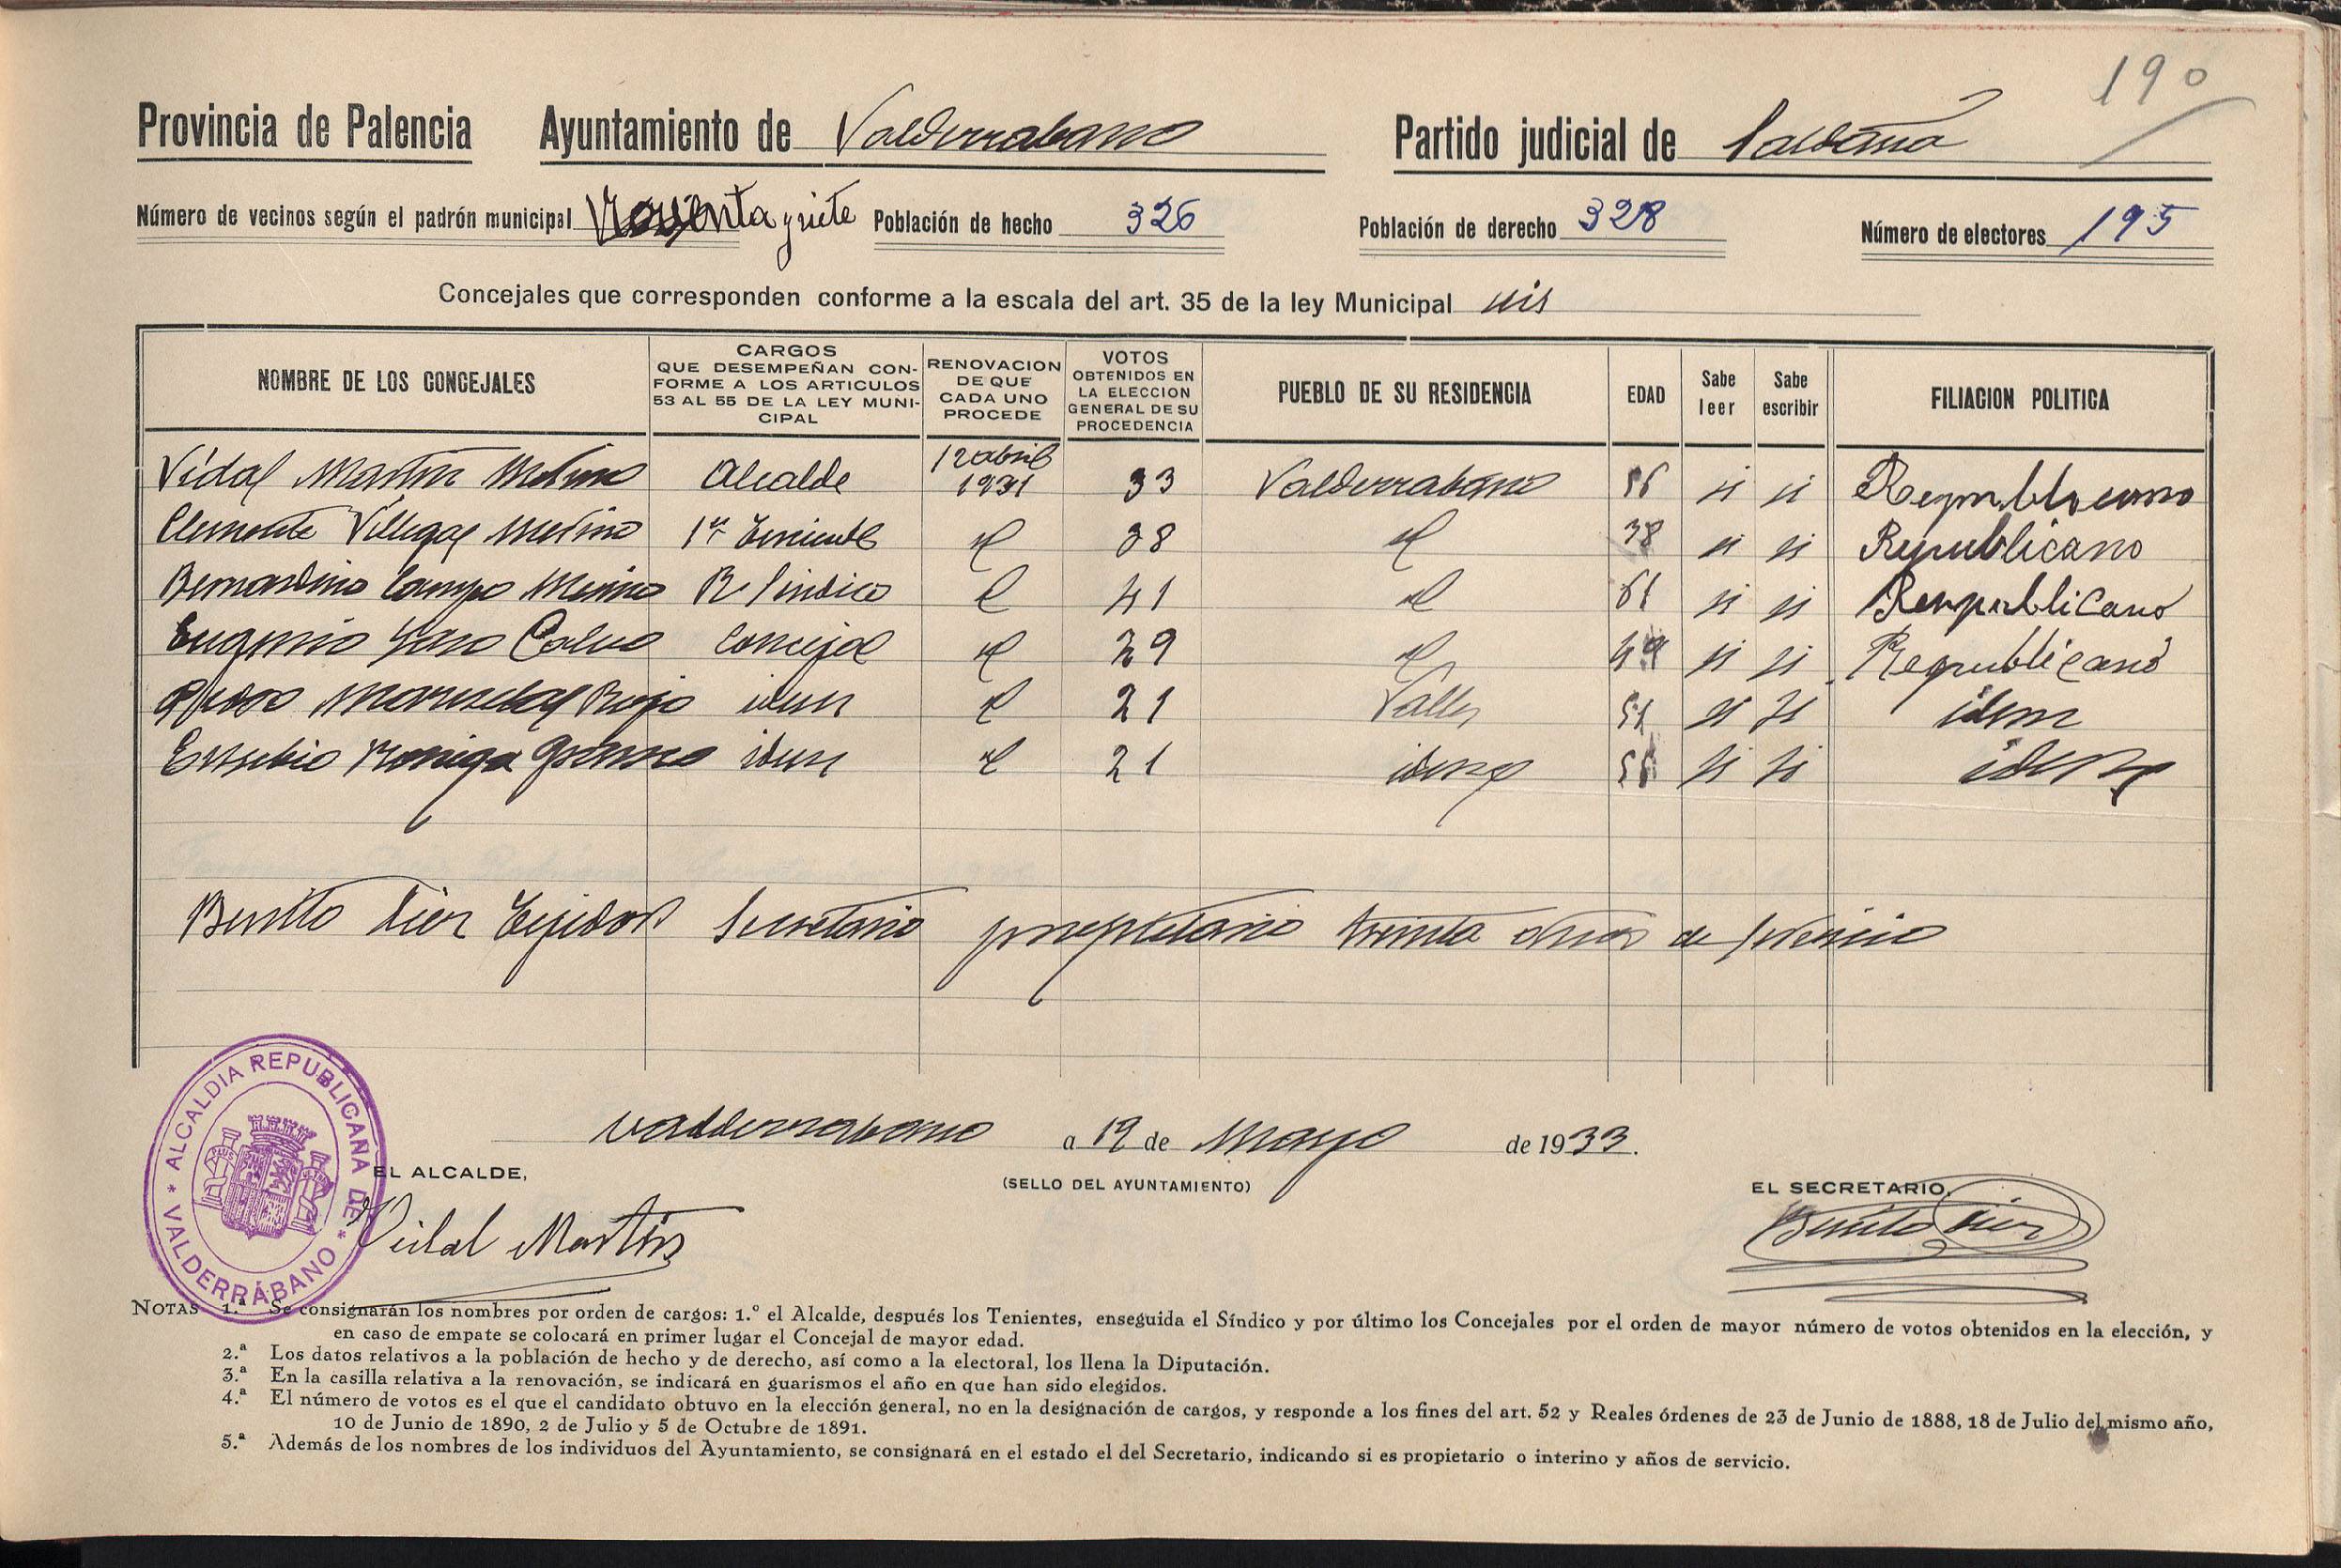 190
Provincia de Palencia Ayuntamiento de Valderrabano Partido judicial de Saldaña
Número de vecinos según el padrón municipal Noventa y siete Población de hecho 326 Población de derecho 328 Número de electores 195
Concejales que corresponden conforme a la escala del art. 35 de la ley Municipal seis
NOMBRE DE LOS CONCEJALES CARGOS QUE DESEMPEÑAN CON- FORME A LOS ARTICULOS 53 AL 55 DE LA LEY MUNI- CIPAL RENOVACION DE QUE CADA UNO PROCEDE VOTOS OBTENIDOS EN LA ELECCION GENERAL DE SU PROCEDENCIA PUEBLO DE SU RESIDENCIA EDAD Sabe leer Sabe escribir FILIACION POLITICA
Vidal Martin Merino Alcalde 12 abril 1931 33 Valderrabano 56 si si Republicano
Clemente Villegas Merino 1er Teniente id 38 id 38 si si Republicano
Bernardino Campo Merino R Sindico id 41 id 61 si si Republicano
Eugenio Calvo Concejal id 29 id 49 si si Republicano
Rojo idem id 21 Valles 51 si si idem
Eusebio idem id 21 idem si si idem
Benito Dier Tejedor Secretario propietario treinta años de servicio
ALCALDIA REPUBLICANA DE * VALDERRÁBANO *
PLUS
Valderrabano a 19 de Mayo de 1933.
EL ALCALDE, (SELLO DEL AYUNTAMIENTO) EL SECRETARIO,
Vidal Martin Benito Dier
NOTAS 1.ª Se consignarán los nombres por orden de cargos: 1.º el Alcalde, después los Tenientes, enseguida el Síndico y por último los Concejales por el orden de mayor número de votos obtenidos en la elección, y
en caso de empate se colocará en primer lugar el Concejal de mayor edad.
2.ª Los datos relativos a la población de hecho y de derecho, así como a la electoral, los llena la Diputación.
3.ª En la casilla relativa a la renovación, se indicará en guarismos el año en que han sido elegidos.
4.ª El número de votos es el que el candidato obtuvo en la elección general, no en la designación de cargos, y responde a los fines del art. 52 y Reales órdenes de 23 de Junio de 1888, 18 de Julio del mismo año,
10 de Junio de 1890, 2 de Julio y 5 de Octubre de 1891.
5.ª Además de los nombres de los individuos del Ayuntamiento, se consignará en el estado el del Secretario, indicando si es propietario o interino y años de servicio.